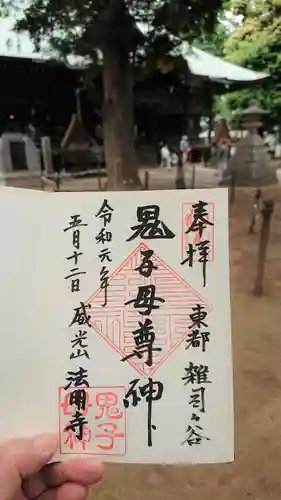 奉拝
東都 雑司ヶ谷
鬼子母尊神
令和元年
五月十二日 威光山 法明寺
鬼子
母神